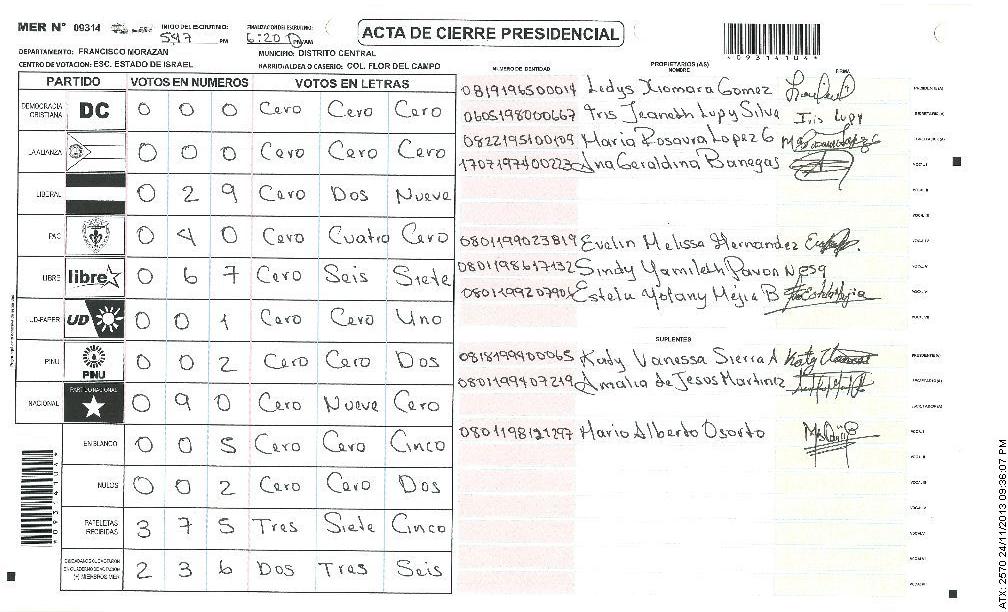 MER N° 09314 INICIO DEL ESCRUTINIO: 5:47 PM FINALIZACION DEL ESCRUTINIO: 6:20 PM/AM
ACTA DE CIERRE PRESIDENCIAL
*09314104*
DEPARTAMENTO: FRANCISCO MORAZAN MUNICIPIO: DISTRITO CENTRAL
CENTRO DE VOTACION: ESC. ESTADO DE ISRAEL BARRIO/ALDEA O CASERIO: COL. FLOR DEL CAMPO
PARTIDO VOTOS EN NUMEROS VOTOS EN LETRAS
DEMOCRACIA CRISTIANA DC 0 0 0 Cero Cero Cero
LA ALIANZA 0 0 0 Cero Cero Cero
LIBERAL 0 2 9 Cero Dos Nueve
PAC 0 4 0 Cero Cuatro Cero
LIBRE libre 0 6 7 Cero Seis Siete
UD-FAPER UD 0 0 1 Cero Cero Uno
PINU PINU 0 0 2 Cero Cero Dos
NACIONAL PARTIDO NACIONAL 0 9 0 Cero Nueve Cero
EN BLANCO 0 0 5 Cero Cero Cinco
NULOS 0 0 2 Cero Cero Dos
PAPELETAS RECIBIDAS 3 7 5 Tres Siete Cinco
(+) MIEMBROS MER 2 3 6 Dos Tres Seis
*09314104*
NUMERO DE IDENTIDAD PROPIETARIOS (AS) NOMBRE FIRMA
0819196500014 Ledys Xiomara Gomez PRESIDENTE(A)
0605198000667 Iris Jeaneth Lupy Silva Iris Lupy SECRETARIO(A)
0822195100109 Maria Rosaura Lopez G ESCRUTADOR(A)
1707197400223 Ana Geraldina Banegas VOCAL I
VOCAL II
VOCAL III
0801199023819 Evelin Melissa Hernandez VOCAL IV
0801198617132 Sindy Yamileth Pavon VOCAL V
Estela Yolany Mejia B VOCAL VI
VOCAL VII
SUPLENTES
0818199400065 Kady Vanessa Sierra A PRESIDENTE(A)
0801199407219 Amalia de Jesus Martinez SECRETARIO(A)
ESCRUTADOR(A)
0801198121297 Mario Alberto Osorto VOCAL I
VOCAL II
VOCAL III
VOCAL IV
VOCAL V
VOCAL VI
VOCAL VII
ATX: 2570 24/11/2013 09:36:07 PM